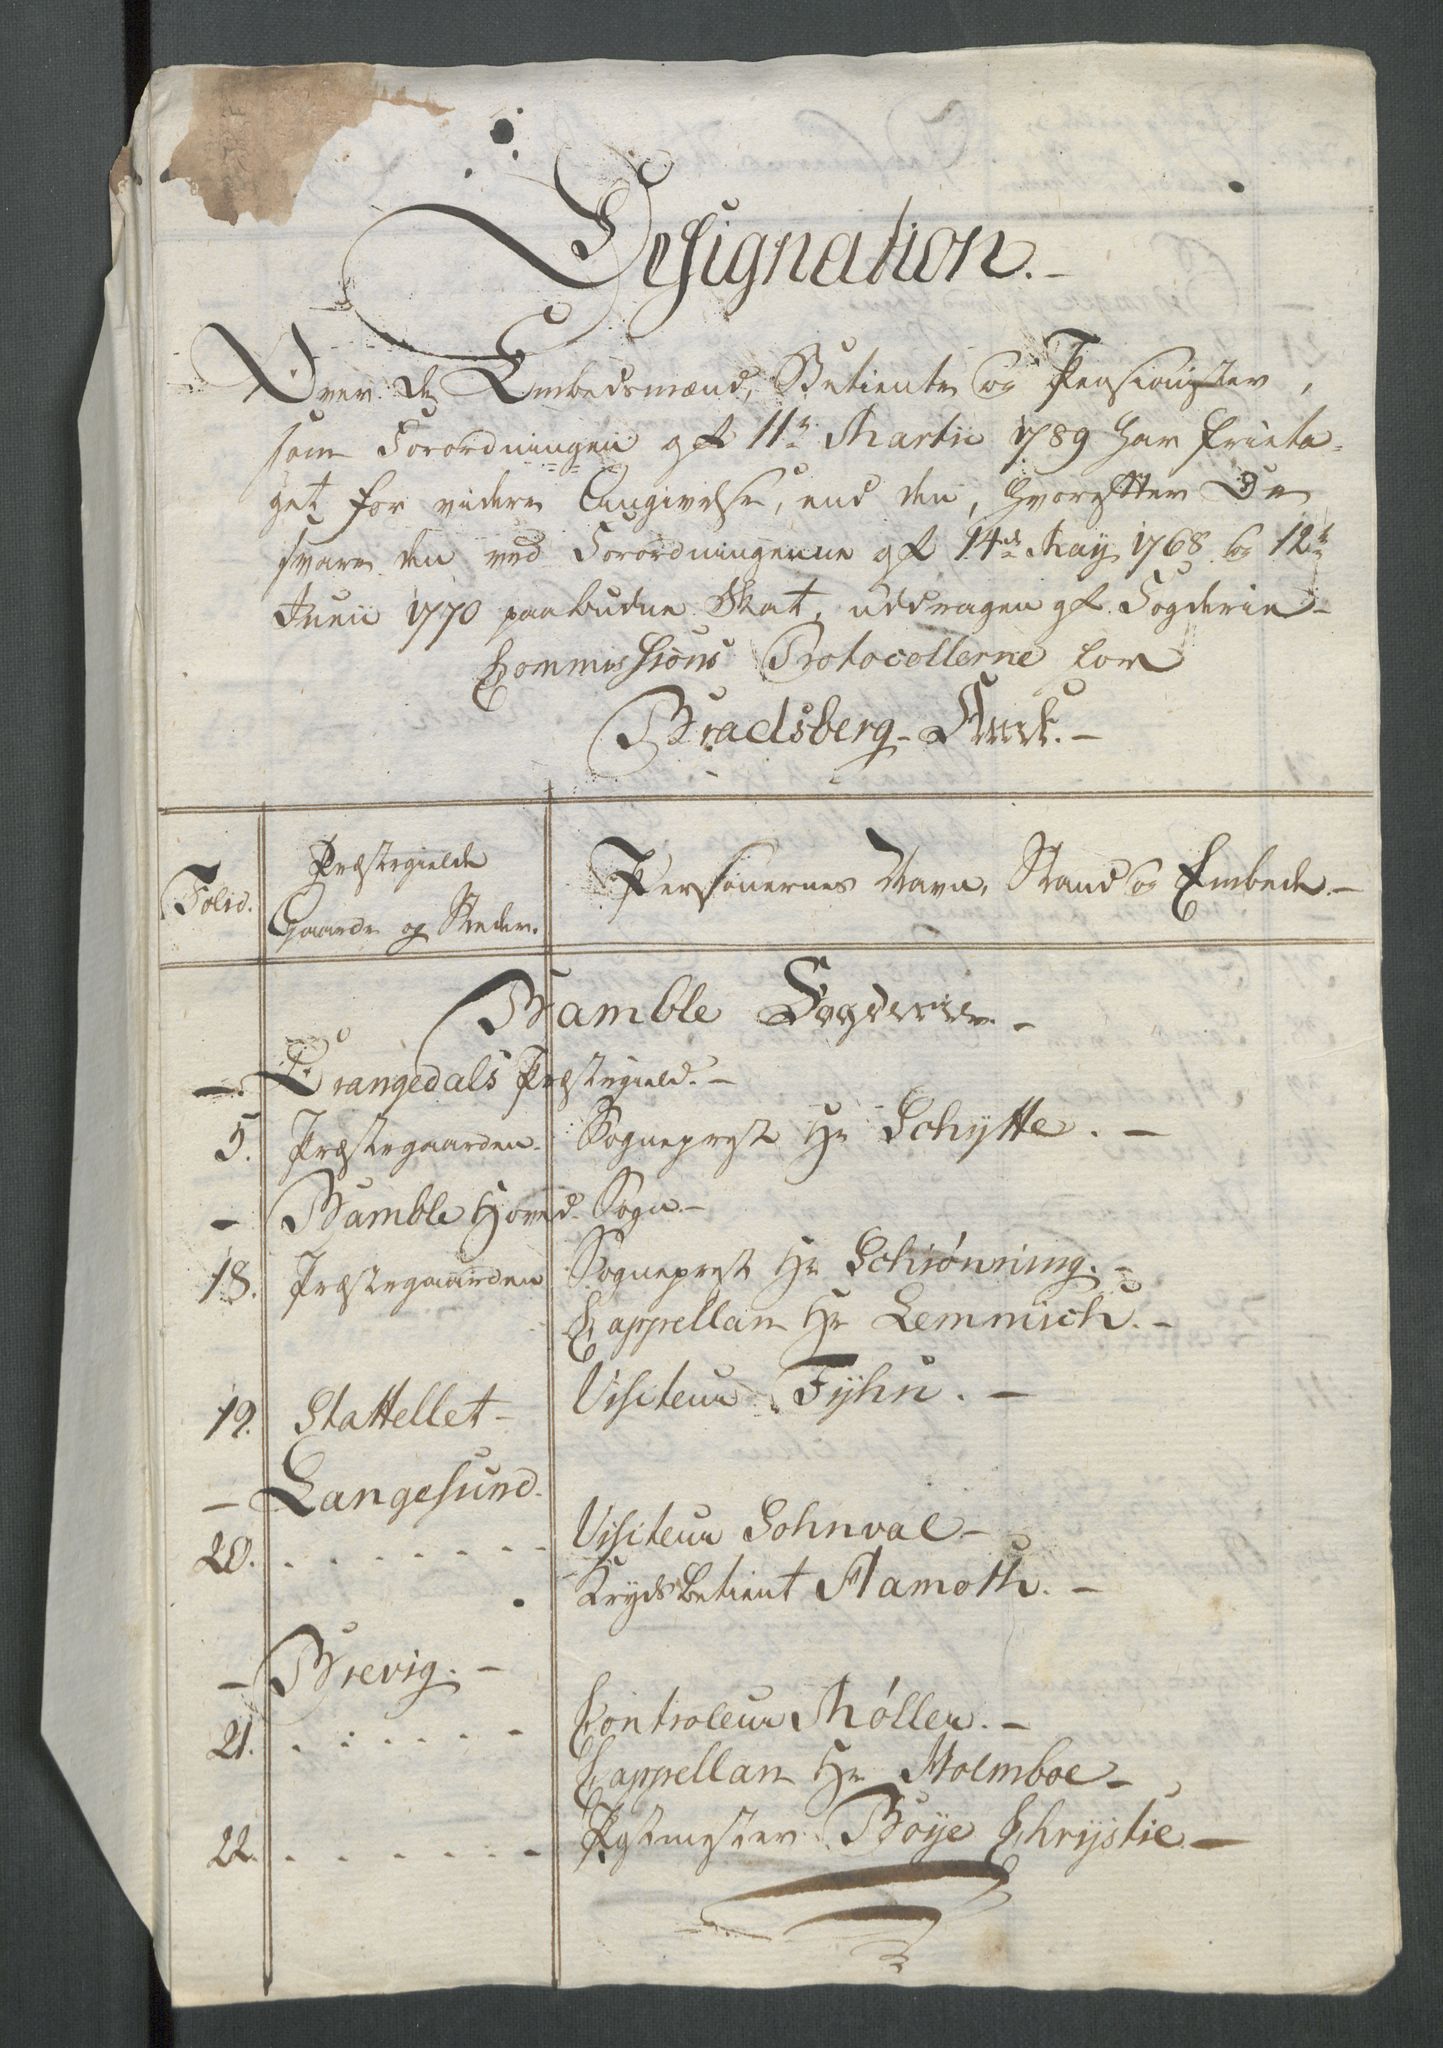 Designation.
Over de Embedsmænd, Betiente og Pensionister,
som Forordningen af 11te Martii 1789 har frieta-
get for videre Angivelse, end den, hvorefter De
svare den ved Forordningerne af 14de May 1768 og 12te
Junii 1770 paabudne Skat, uddragen af Fogderie-
Commissions Protocollerne for
Bradsberg Amt.
Folio.
Præstegielde
Gaarde og Steder.
Personernes Navn, Stand og Embede.
Bamble Fogderie.
Drangedals Præstegield.
5. Præstegaarden Sognepræst Hr Schytte.
Bamble Hoved-Sogn
18. Præstegaarden Sognepræst Hr Schiønning.
Cappellan Hr Lemmich.
19. Stattellet Visiteur Fyhn.
Langesund.
20. Visiteur Sohnval
Krydsbetient Flamoth.
Brevig.
21. Controleur Møller.
Cappellan Hr Holmboe
22. Postmester Boye Chrystie